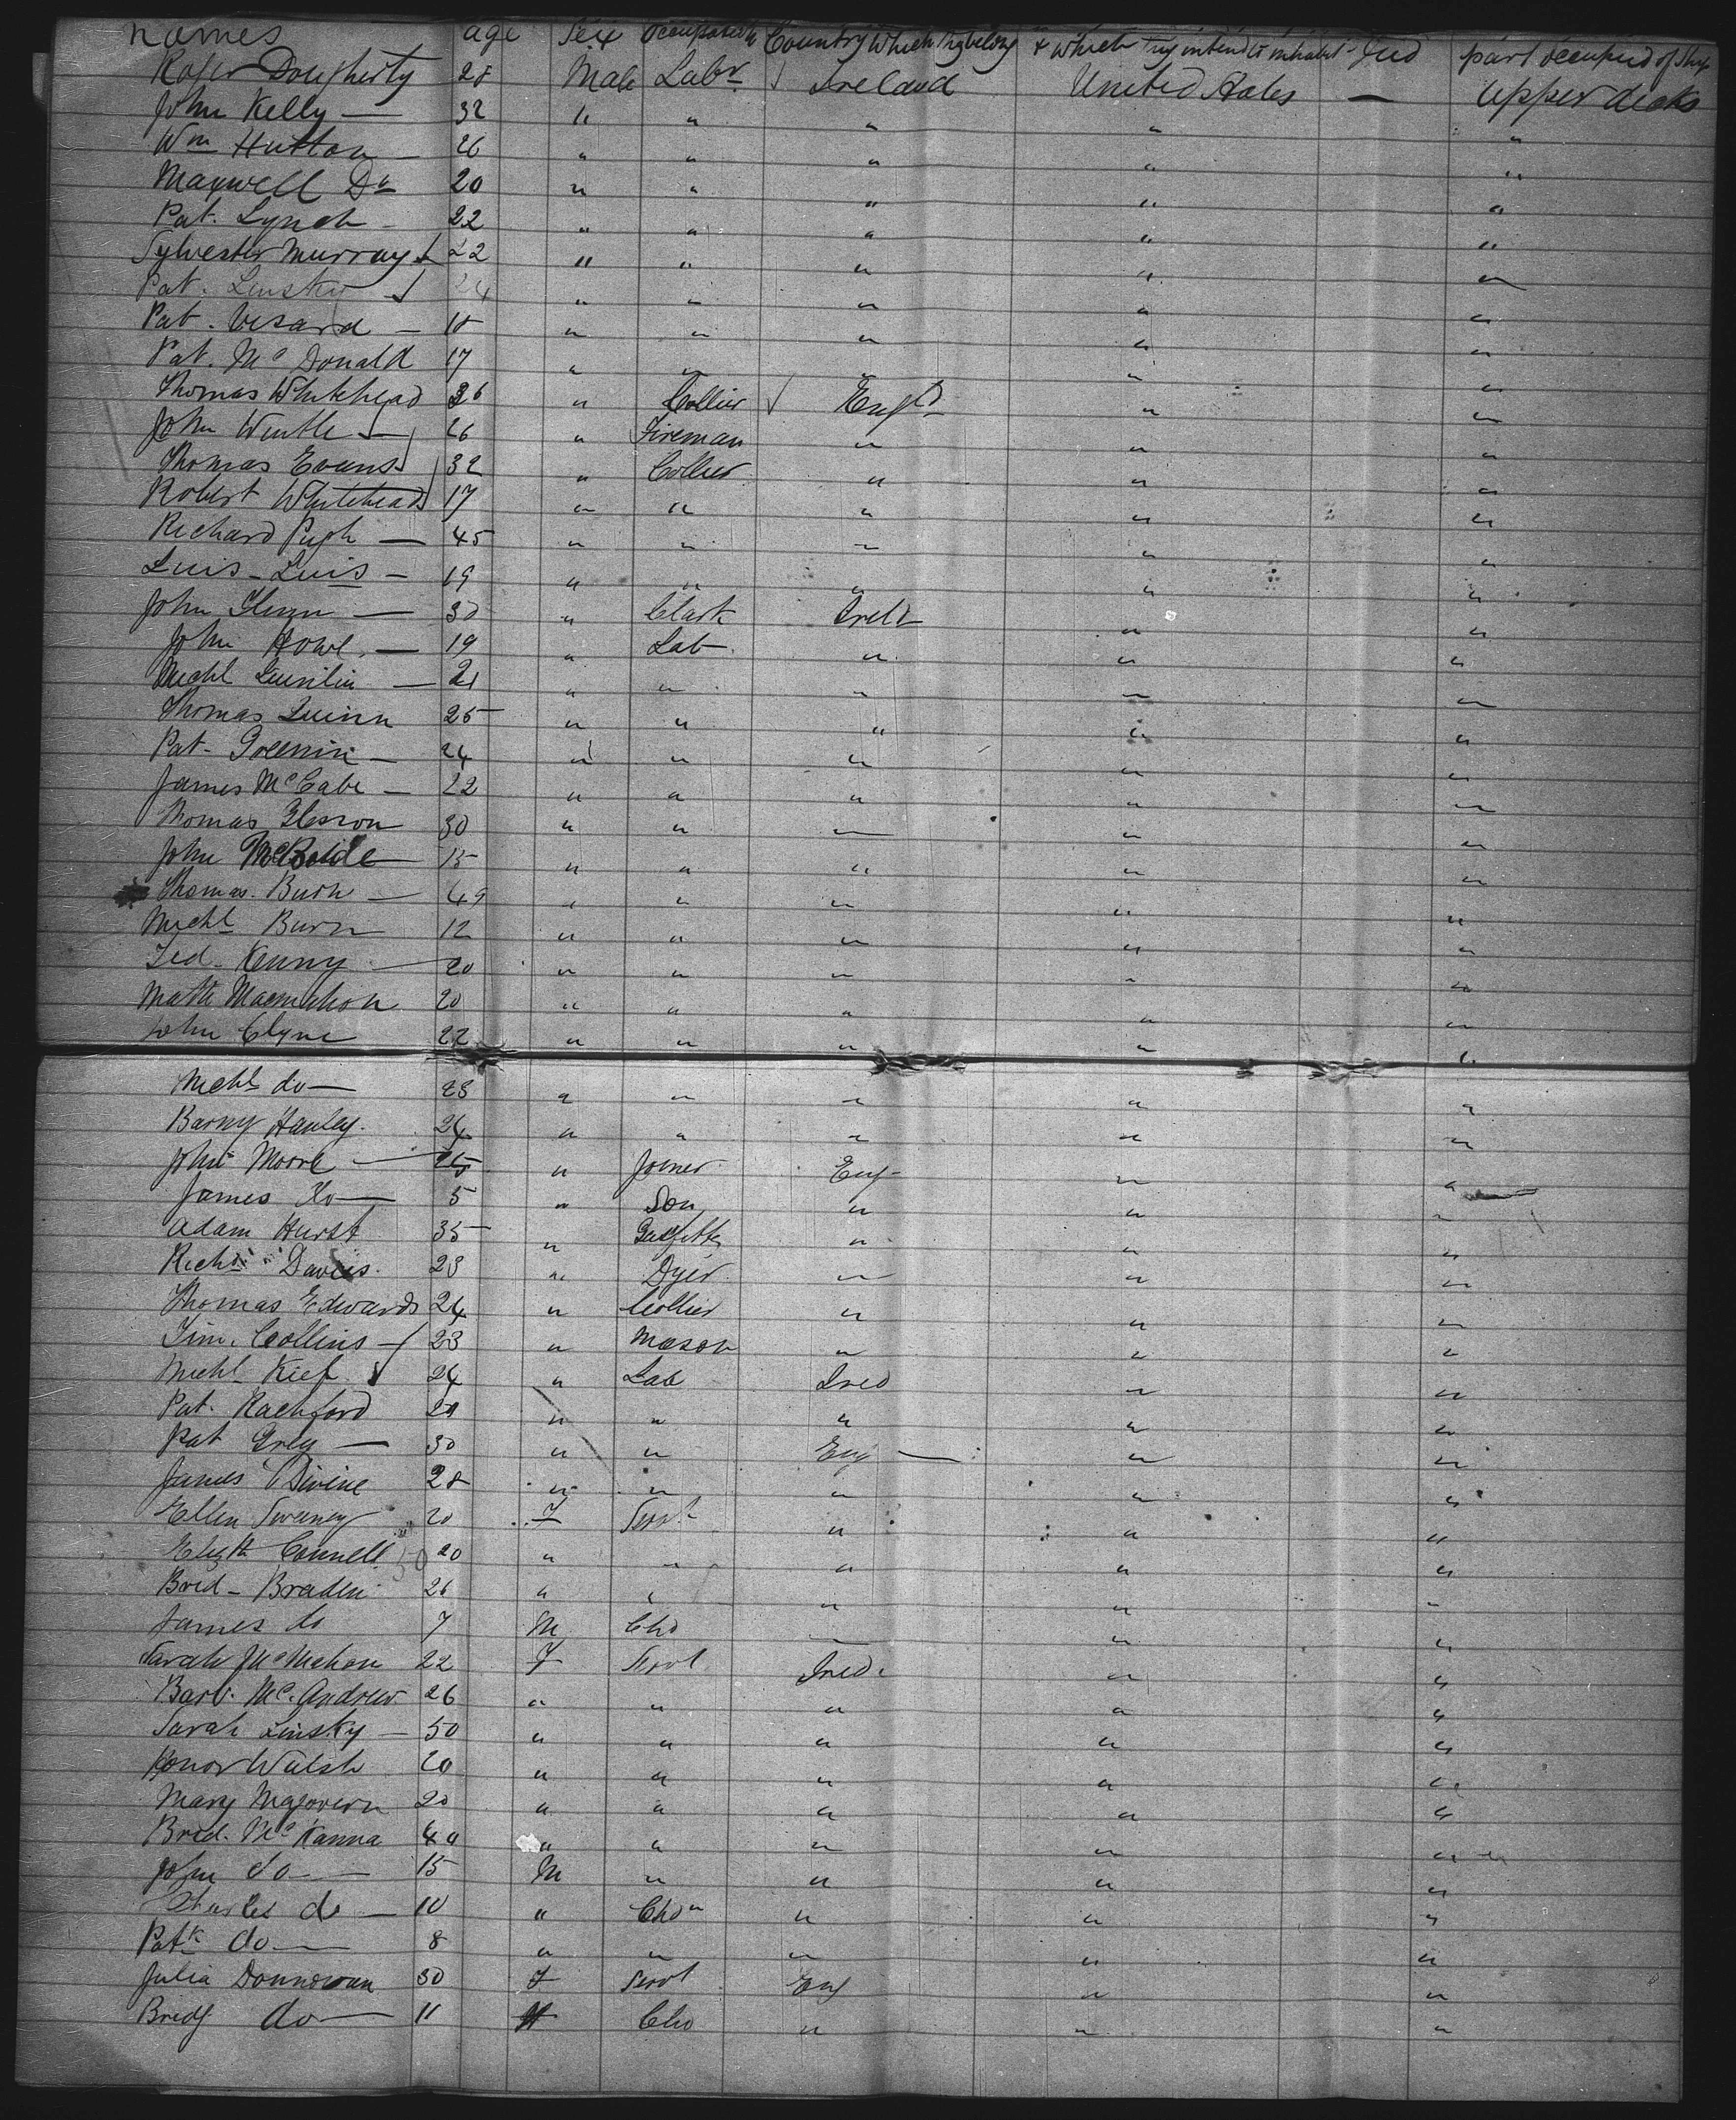 names age Sex Occupation Country Which they belong & Which they intend to inhabit part occupied of Ship
Roger Dougherty 28 Male Labr Ireland United States — Upper decks
John Kelly — 32 " " " " "
Wm Hutton — 26 " " " " "
Maxwell Do 20 " " " " "
Pat. Lynch - 22 " " " " "
Sylvester Murray 22 " " " " "
Pat. Linsky 24 " " " " "
Pat. — 18 " " " " "
Pat. Mc Donald 17 " " " " "
Thomas Whitehead 36 " Collier Engd " "
John 26 " Fireman " " "
Thomas Evans 32 " Collier " " "
Robert Whitehead 17 " " " " "
Richard Pugh — 45 " " " " "
Luis - Luis - 19 " " " " "
John — 30 " Clark Ireld " "
John Howe — 19 " Lab " " "
Michl — 21 " " " " "
Thomas Quinn 25 " " " " "
Pat - 24 " " " " "
James McCabe - 22 " " " " "
Thomas 30 " " " " "
John 15 " " " " "
Thomas. Burn — 49 " " " " "
Michl Burn 12 " " " " "
Ted - Kenny 20 " " " " "
Matt Macmahon 20 " " " " "
John Clyne 22 " " " " "
Michl do — 23 " " " " "
Barny Hanley. 24 " " " " "
John Moore — 25 " Joiner Eng - " "
James Do — 5 " Son " " "
Adam Hurst 35 " Gasfitter " " "
Richd Davis. 23 " Dyer " " "
Thomas Edwards 24 " Collier " " "
Tim. Collins - 23 " Mason " " "
Michl Kief 24 " Lab Ired " "
Pat. Rachford " " " " "
Pat Grey — 30 " " Eng — " "
James Divine 28 " " " " "
Ellen Sweeney 20 F Servt " " "
Elizth Connell 20 " " " " "
Brid - Braden 26 " " " " "
James do 7 M Chd " " "
Sarah McMahon 22 F Servt Ired. " "
Barb. Mc. Andrew 26 " " " " "
Sarah Linsky — 50 " " " " "
Honor Walsh 20 " " " " "
Mary Magovern 20 " " " " "
Brid. Mc Kanna 40 " " " " "
John do — 15 M " " " "
Charles do — 10 " Chdn " " "
Patk do — 8 " " " " "
Julia Donnovan 30 F Servt Eng " "
Bridg do — 11 Chd " " "